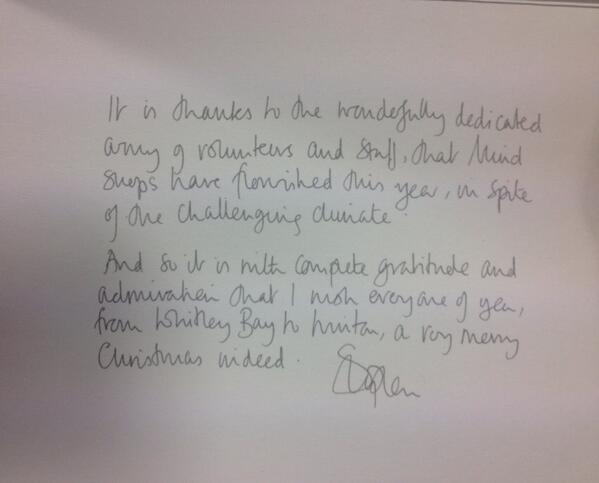 It is thanks to the wonderfully dedicated
army of volunteers and staff, that Mind
shops have flourished this year, in spite
of the challenging climate.
And so it is with complete gratitude and
admiration that I wish everyone of you,
from Whitley Bay to , a very merry
Christmas indeed.
Stephen